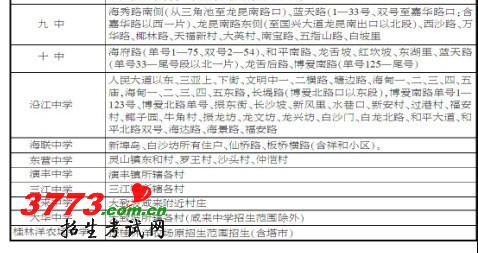 海秀路南侧(从三角池至龙昆南路口)、蓝天路(1—33号、双号至嘉华路口;含
九 中
嘉华路以西一片)、龙昆南路东侧(至国兴大道龙昆南出口以北段)、西沙路、万
华路、椰林路、天福新村、大英村、南宝路、五指山路、白坡里
十 中
海府路(单号1—75、双号2—54)、和平南路、龙舌坡、红坎坡、东湖里、蓝天路
(单号33—尾号段以北一片)、龙舌后路、博爱南路(单号125—尾号)
人民大道以东、三亚上、下街、文明中一、二横路、塘边路、海甸一、二、三、四、五
庙,海甸一、二、三、四、五东路,长堤路(博爱北路口以东段),博爱南路单号1—
沿江中学
123号、博爱北路单号、振东街、长沙坡、新风里、水巷口、新安村、过港村、福安
村、椰子园、牛角村、振龙坊、龙文坊、龙兴坊、白沙门、白龙北路、和平大道、和
平北路双号、海达路、海景路、福安路
海联中学 新埠岛、白沙坊所有住户、仙桥路、板桥横路(含祥和小区)。
东营中学 灵山镇东和村、罗王村、沙头村、仲恺村
演丰中学 演丰镇所辖各村
三江中学 三江 所辖各村
来中学 大致坡咸来附近村庄
大华中学 所辖各村(咸来中学招生范围除外)
桂林洋农场 学 场原招生范围招生(含塔市)
3773.com.cn
招生考试网